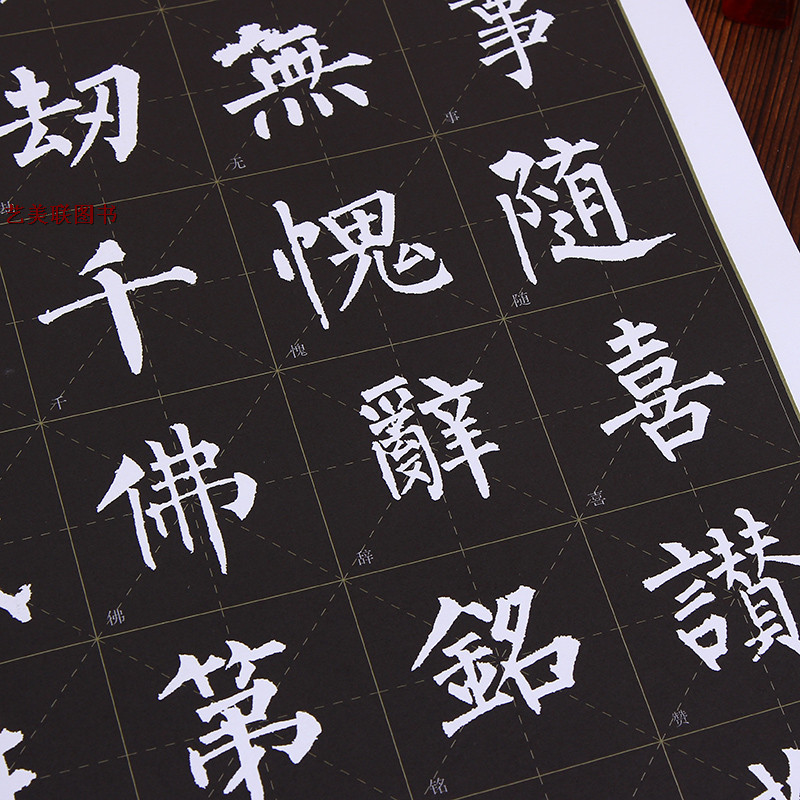 事随喜讃
無愧辭銘
刼千佛第
事 随 喜 赞
无 愧 辞 铭
千 佛
艺美联图书